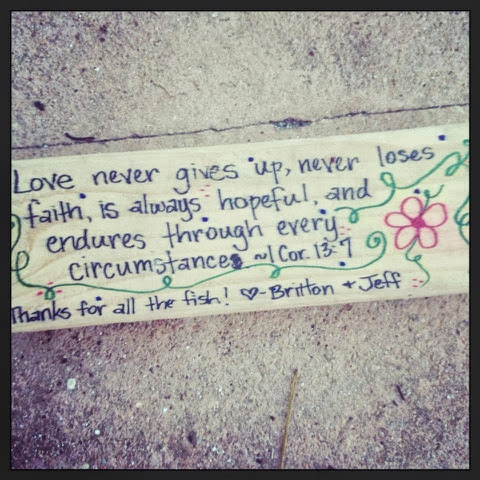 Love never gives up, never loses
faith, is always hopeful, and
endures through every
circumstances ~1 Cor. 13:7
Thanks for all the fish! ♡-Britton + Jeff